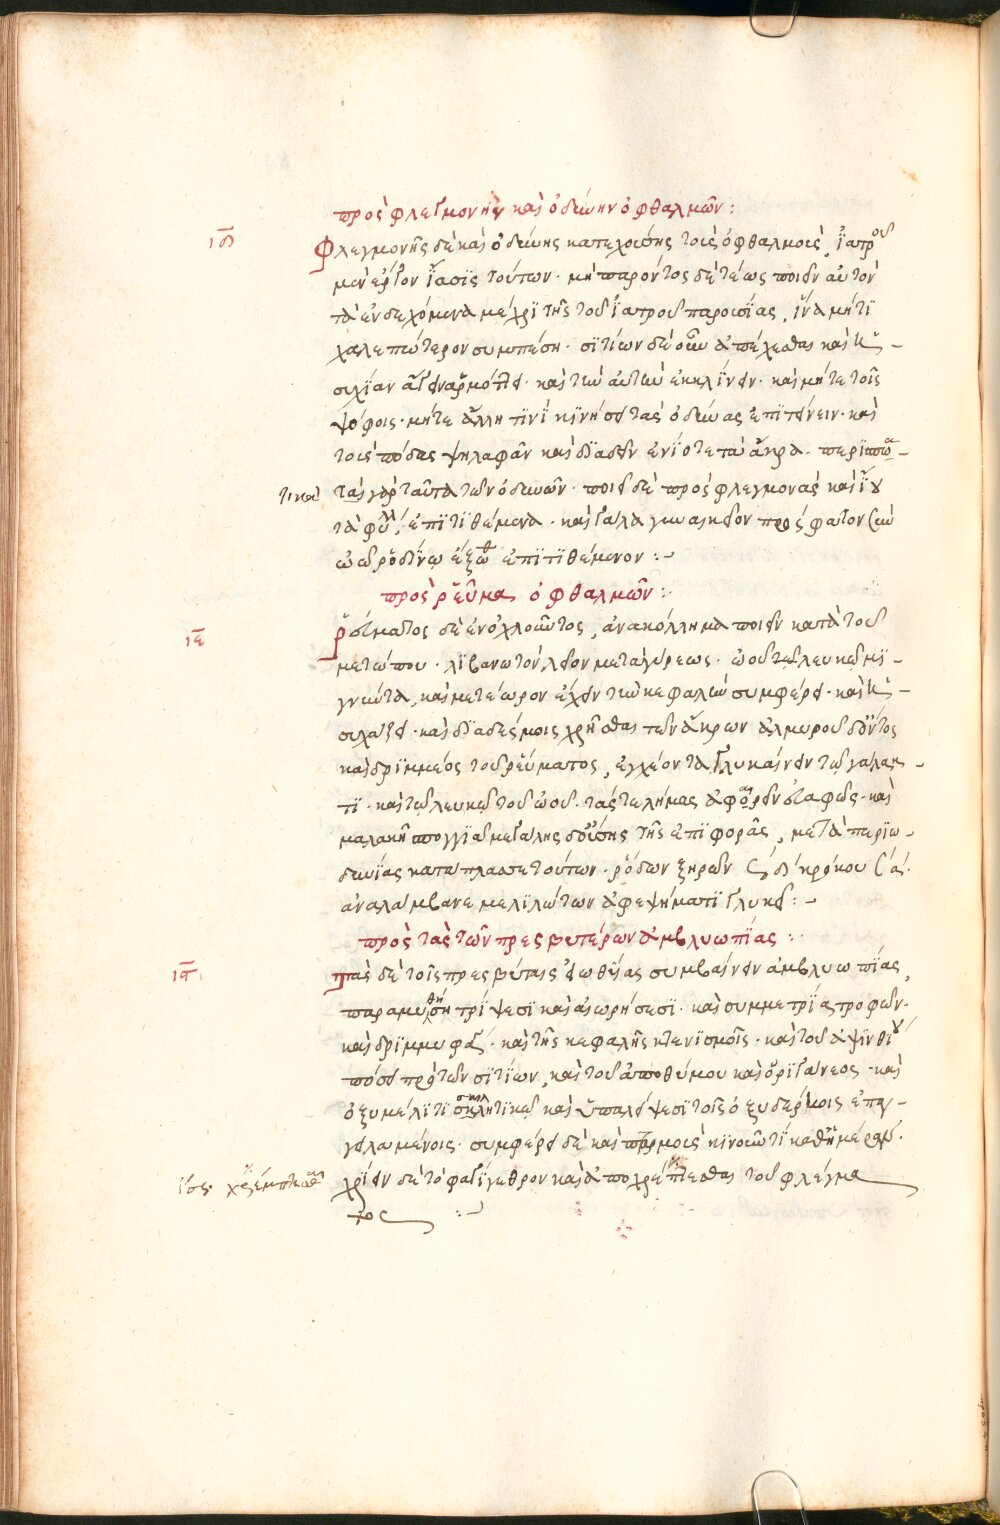 πρὸς φλεγμονὴν καὶ ὀδύνην ὀφθαλμῶν :
ιδ
Φλεγμονῆς δὲ καὶ ὀδύνης κατεχούσης τοὺς ὀφθαλμοὺς, ἰατροῦ
μὲν ἔργον ἴασις τούτων · μὴ παρόντος δὲ τέως ποιεῖν αὐτὸν
τὰ ἐνδεχόμενα μέχρι τῆς τοῦ ἰατροῦ παρουσίας, ἵνα μή τι
χαλεπώτερον συμπέση · σιτίων δὲ οὖν ἀπέχεσθαι καὶ ἡ –
συχίαν ἄγειν ἁρμόττει · καὶ τὴν αὐγὴν ἐκκλίνειν · καὶ μήτε τοῖς
ψόφοις · μήτε ἄλλη τινὶ κινήσει τὰς ὀδύνας ἐπιτείνειν · καὶ
τοὺς πόδας ψηλαφᾶν καὶ διαδεῖν ἐνίοτε τὰ ἄκρα ·
τὰς γὰρ ταῦτα τῶν ὀδυνῶν · ποιεῖ δὲ πρὸς φλεγμονὰς καὶ ἴου
τὰ φύλλα, ἐπιτιθέμενα · καὶ γάλα γυναικεῖον πρόσφατον σὺν
ὠῶ ῥοδίνω ἔξωθεν ἐπιτιθέμενον :–
πρὸς ῥεῦμα ὀφθαλμῶν :
ιε
ῥεύματος δὲ ἐνοχλοῦντος, ἀνακόλλημα ποιεῖν κατὰ τοῦ
μετώπου · λιβανωτὸν λεῖον μετὰ γύρεως · ὠοῦ τῶ λευκῶ μι –
γνύντα, καὶ μετέωρον ἔχειν τὴν κεφαλὴν συμφέρει · καὶ ἡ –
συχάζει · καὶ διαδεσμοῖς χρῆσθαι τῶν ἄκρων ἁλμυροῦ δὲ ὄντος
καὶ δριμμέος τοῦ ῥεύματος, ἐγχέοντα γλυκαίνειν τῶ γάλακ –
τι · καὶ τῶ λευκῶ τοῦ ὠοῦ · τάς τε λήμας ἀφαιρεῖν εὐαφῶς · καὶ
μαλακῆ σπογγιᾶ μεγάλης δὲ οὔσης τῆς ἐπιφορᾶς, μετὰ περιω –
δυνίας κατάπλασσε τούτων · ῥόδων ξηρῶν δ κρόκου α ·
ἀναλάμβανε μελιλώτων ἀφεψήματι γλυκεῖ :–
πρὸς τὰς τῶν πρεσβυτέρων ἀμβλυωπίας :
ις
τὰς δὲ τοῖς πρεσβύταις εἰωθυίας συμβαίνειν ἀμβλυωπίας,
παραμυθῆ τρίψεσι καὶ αἰωρήσεσι · καὶ συμμετρία τροφῶν ·
καὶ δριμμυφαγ · καὶ τῆς κεφαλῆς κτενισμοῖς · καὶ τοῦ ἀψινθίου
πόσει πρὸ τῶν σιτίων, καὶ τοῦ ἀπὸ θύμου καὶ ὀριγάνεος · καὶ
ὀξυμέλιτι σκιλλητικῶ καὶ ὑπαλείψεσι τοῖς ὀξυδερκοῖς ἐπαγ –
γελλομένοις · συμφέρει δὲ καὶ πταρμοὺς κινοῦντι καθ' ἡμέραν ·
χρίειν δὲ τὸ φαγίγεθρον καὶ ἀποχρέμπτεσθαι τοῦ φλέγμα
τος :–